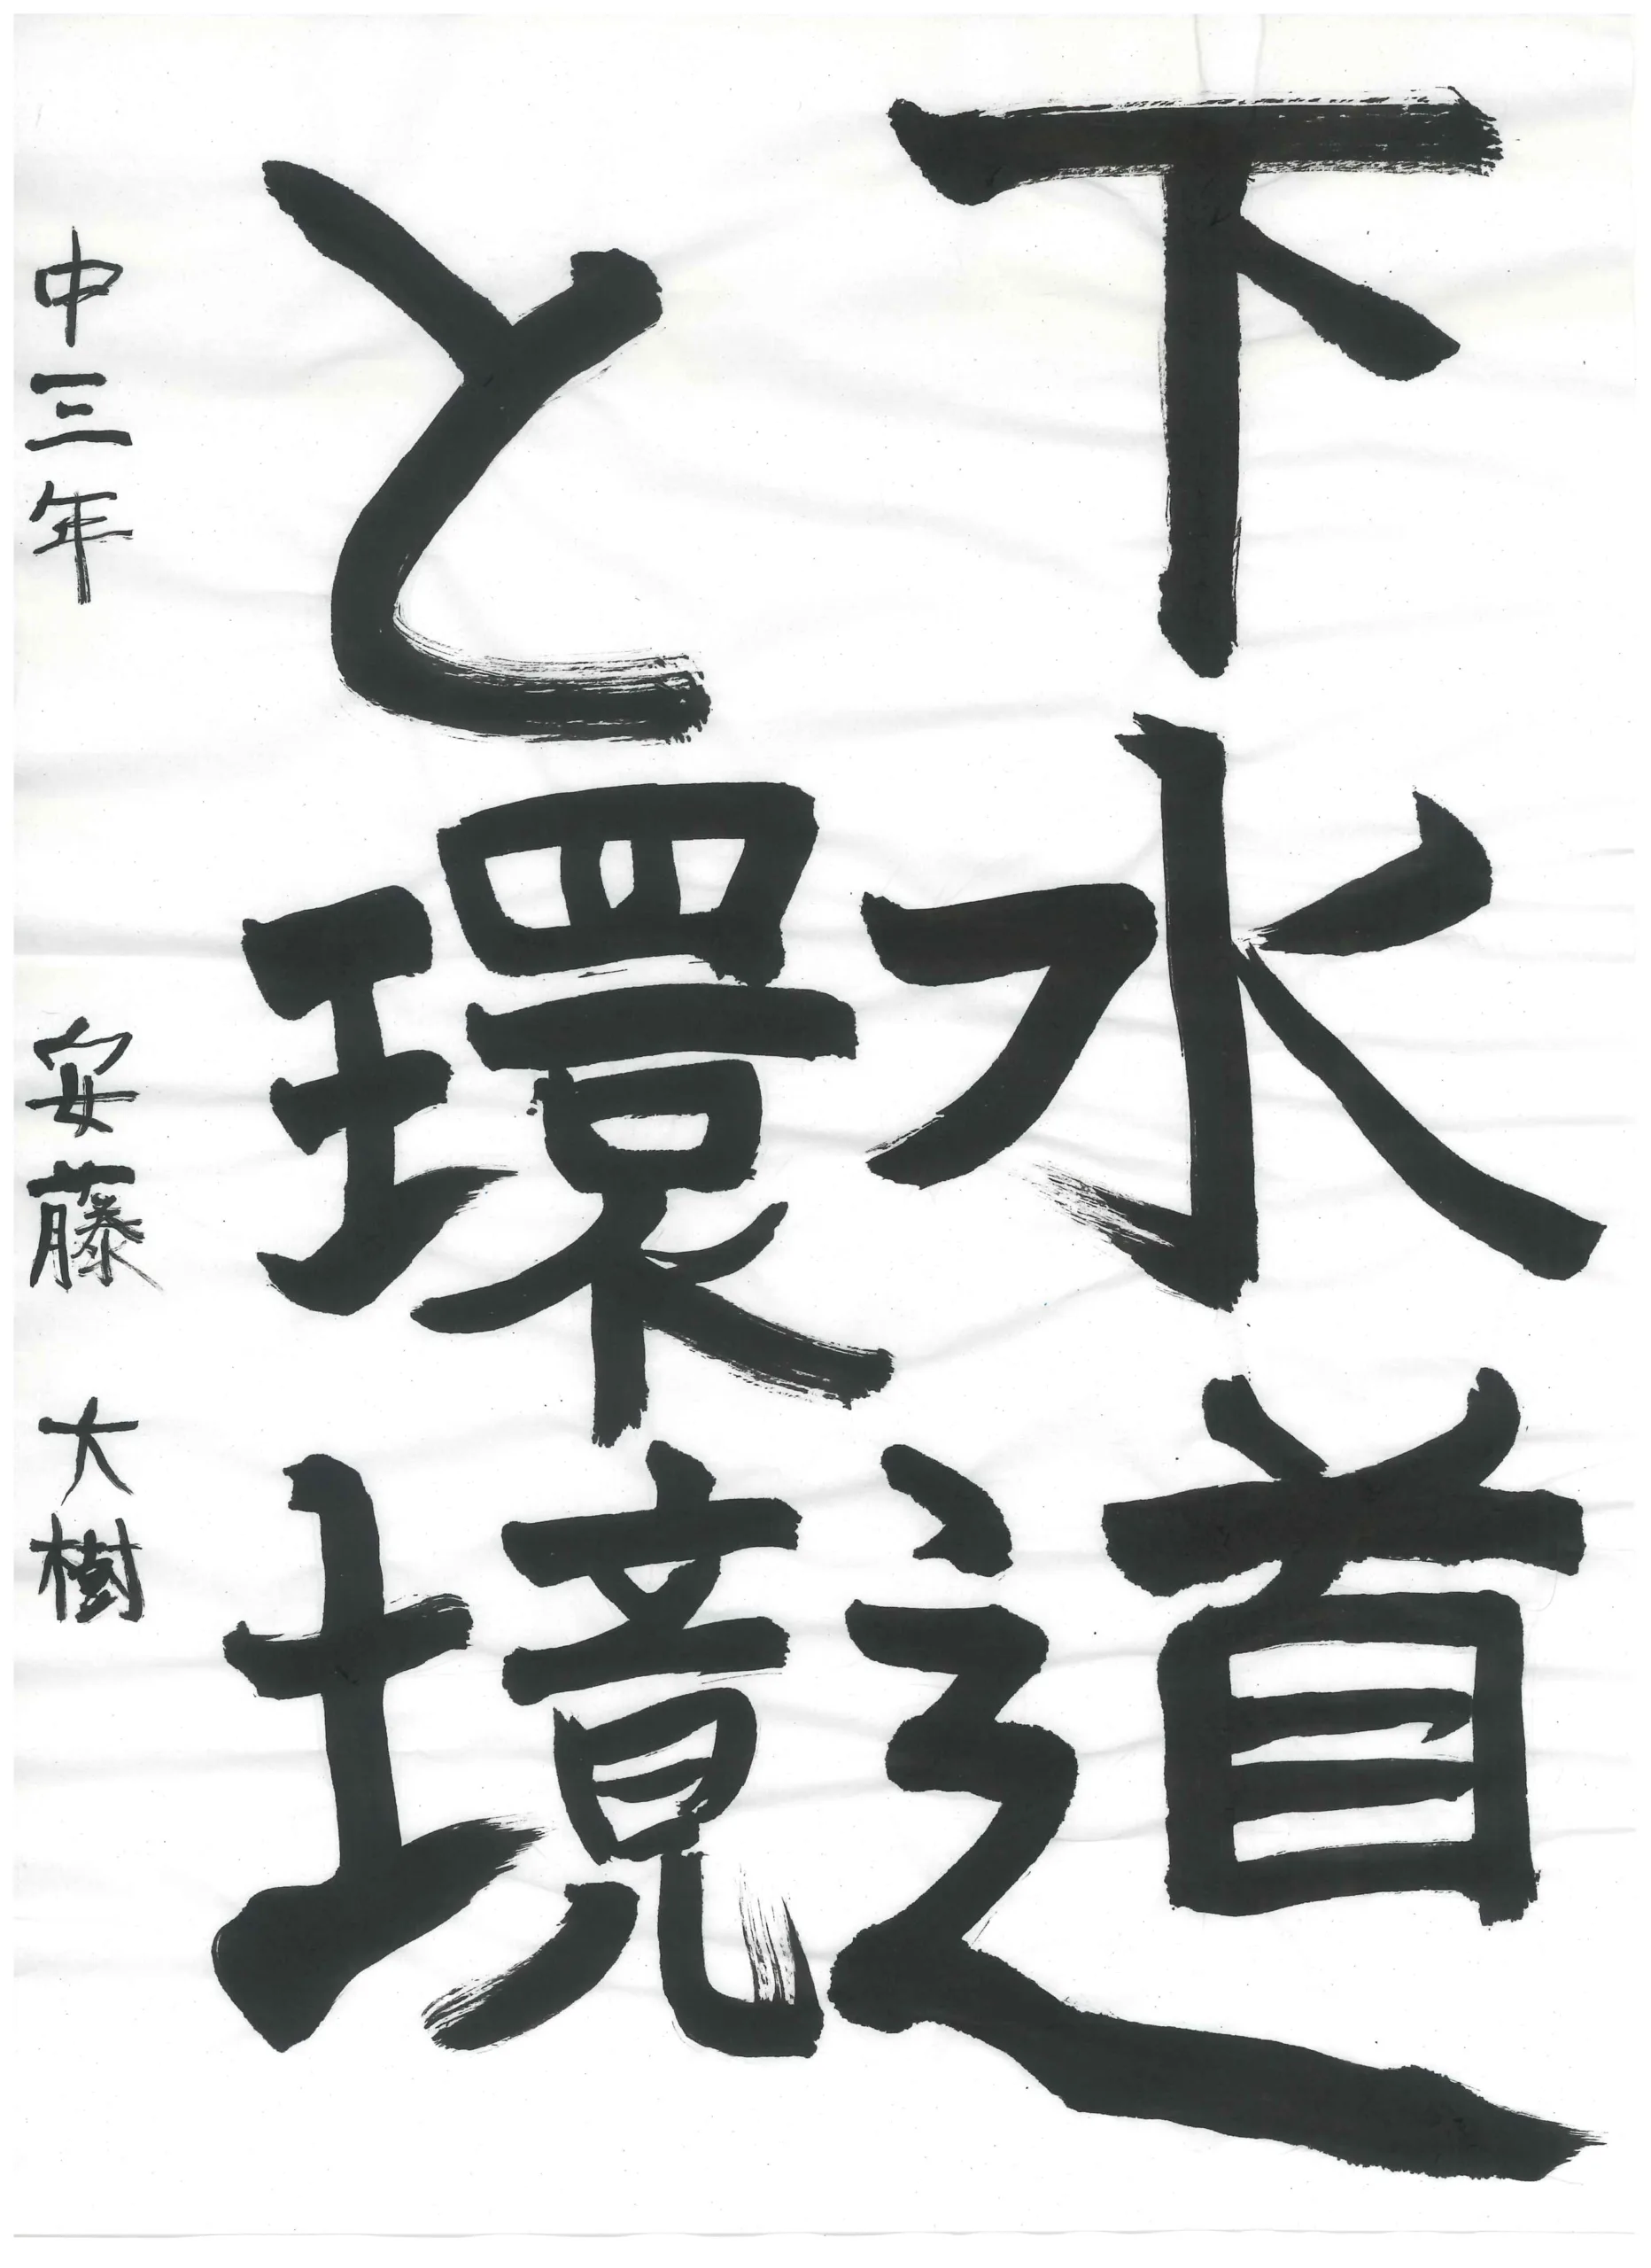 下水道
と環境
中三年 安藤 大樹